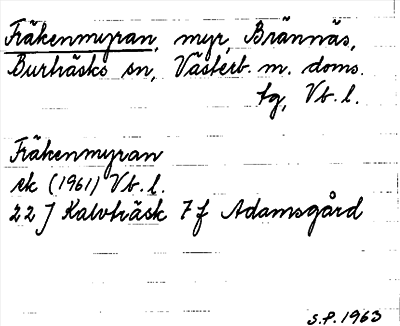 Fräkenmyran, myr, Brännäs,
Burträsks sn, Västerb. m. doms.
tg, Vb. l.
Fräkenmyran
ek (1961) Vb. l.
22 J Kalvträsk 7 f Adamsgård
S.P. 1963